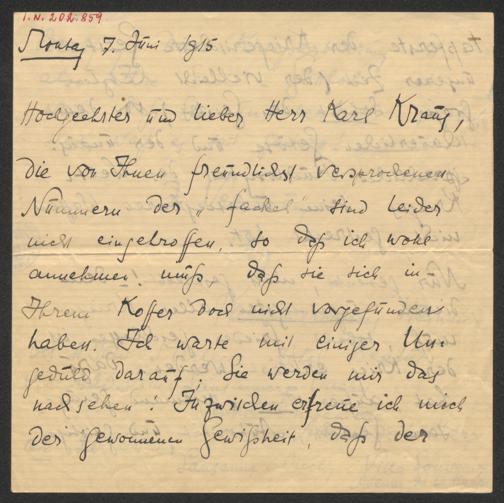 I.N. 202.859
Montag 7. Juni 1915
Hochgeehrter und lieber Herr Karl Kraus,
die von Ihnen freundlichst versprochenen
Nummern der „Fackel" sind leider
nicht eingetroffen, so daß ich wohl
annehmen muß, daß sie sich in
Ihrem Koffer doch nicht vorgefunden
haben. Ich warte mit einiger Un-
geduld darauf, Sie werden mir das
nachsehen. Inzwischen erfreue ich mich
der gewonnenen Gewißheit, daß der